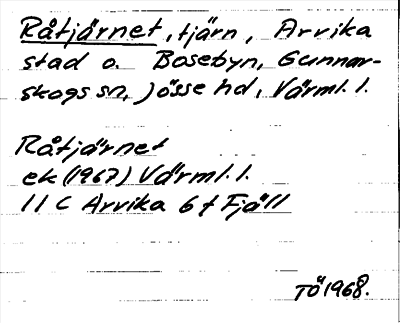 Råtjärnet, tjärn, Arvika
stad o. Bosebyn, Gunnar-
skogs sn, Jösse hd, Värml. l.
Råtjärnet
ek (1967) Värml. l.
11 C Arvika 6 f Fjäll
TÖ 1968.